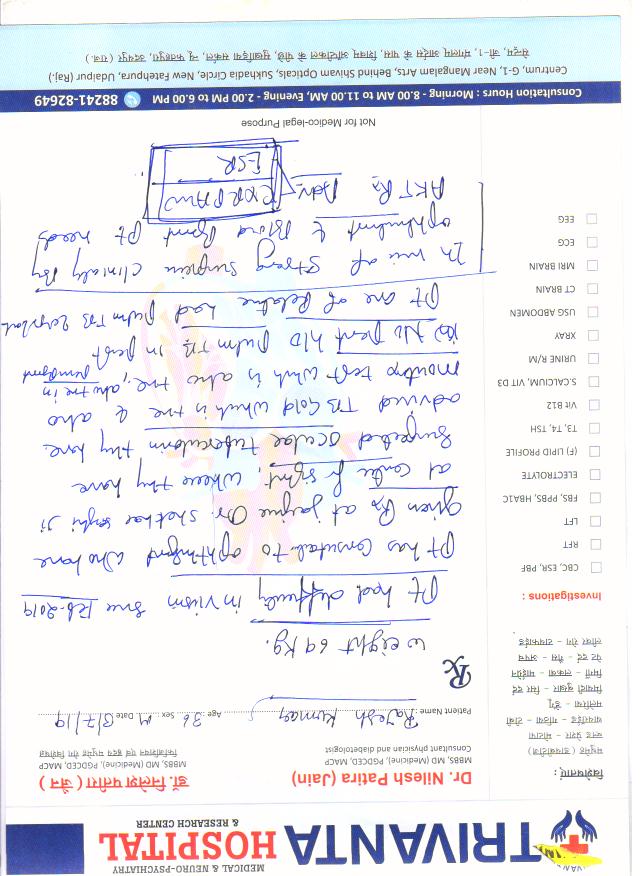 TRIVANTA
HOSPITAL
& RESEARCH CENTER
MEDICAL & NEURO-PSYCHIATRY
Dr. Nilesh Patira (Jain)
MBBS, MD (Medicine), PGDCED, MACP
Consultant physician and diabetologist
डॉ. निलेश पतीरा ( जैन )
MBBS, MD (Medicine), PGDCED, MACP
विशेषताएं :
मधुमेह (डायबीटीज)
ब्लड प्रेशर - मोटापा
थायरॉइड - गठिया - टीबी
मलेरिया - डेंगू
मियादी बुखार - सिर दर्द
मिर्गी - लकवा - माईग्रेन
पेट दर्द - गैस - अपच
लीवर रोग - टायफाईड
Patient Name : Rajesh Kumar Age : 36 Sex : M Date 3/7/19
Rx
Weight 69 kg.
Pt had difficulty in vision since Feb-2019
Pt has consulted to opthalmologist who have
given Rx at Dr. Shekhar ji
at centre for sight, where they have
suspected ocular tuberculosis they have
advised TB Gold which is +ve & also
mountop test which is also +ve, also +ve in
No past H/O pulm TB in past
Pt one of Relative had pulm TB
In view of strong suspicion clinically by
opthalmol & Blood Report Pt needs
AKT Rx
Adv.
CXR PA view
ESR
Investigations :
CBC, ESR, PBF
RFT
LFT
FBS, PPBS, HBA1C
ELECTROLYTE
(F) LIPID PROFILE
T3, T4, TSH
Vit B12
S.CALCIUM, VIT D3
URINE R/M
XRAY
USG ABDOMEN
CT BRAIN
MRI BRAIN
ECG
EEG
Not for Medico-legal Purpose
Consultation Hours : Morning - 8.00 AM to 11.00 AM, Evening - 2.00 PM to 6.00 PM 88241-82649
Centrum, G-1, Near Mangalam Arts, Behind Shivam Opticals, Sukhadia Circle, New Fatehpura, Udaipur (Raj.)
सेन्ट्रम, जी-1, मंगलम् आर्ट्स के पास, शिवम् ऑप्टिकल्स के पीछे, सुखाड़िया सर्कल, न्यू फतहपुरा, उदयपुर (राज.)